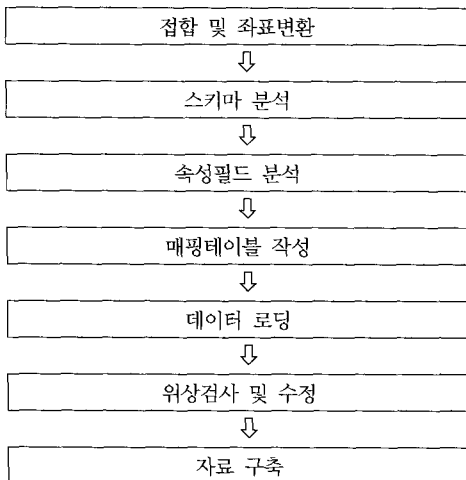 접합 및 좌표변환
스키마 분석
속성필드 분석
매핑테이블 작성
데이터 로딩
위상검사 및 수정
자료 구축